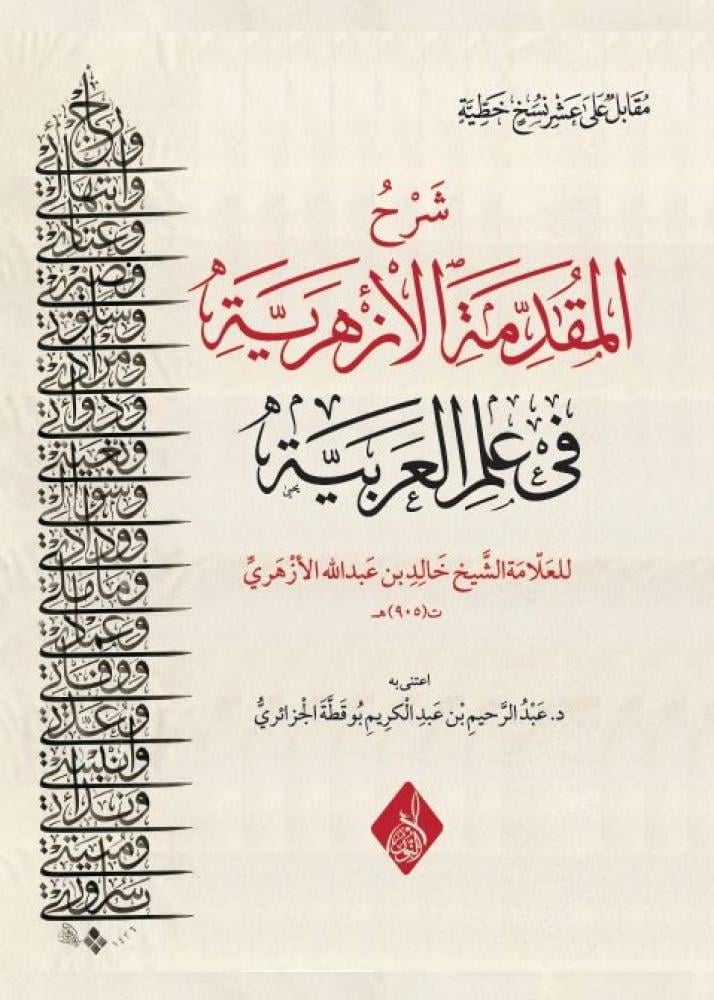 مُقَابَلٌ عَلَى عَشْرِ نُسَخٍ خَطِّيَّةٍ
شَرْحُ
المُقَدِّمَةِ الأَزْهَرِيَّةِ
فِي عِلْمِ العَرَبِيَّةِ
للعَلّامَة الشَّيخ خَالِد بن عَبدالله الأزْهَريِّ
ت(٩٠٥)هـ
اعتنى به
د. عَبْدُ الرَّحيمِ بْن عَبدِ الْكَريمِ بُوقَطَّة الجَزائريُّ
وابتهالي
وعتادي
وسلوتي
ومرادي
ودوائي
وبغيتي
وودادي
وعمادي
وعدتي
وأنيسي
ومنيتي
يا سروري